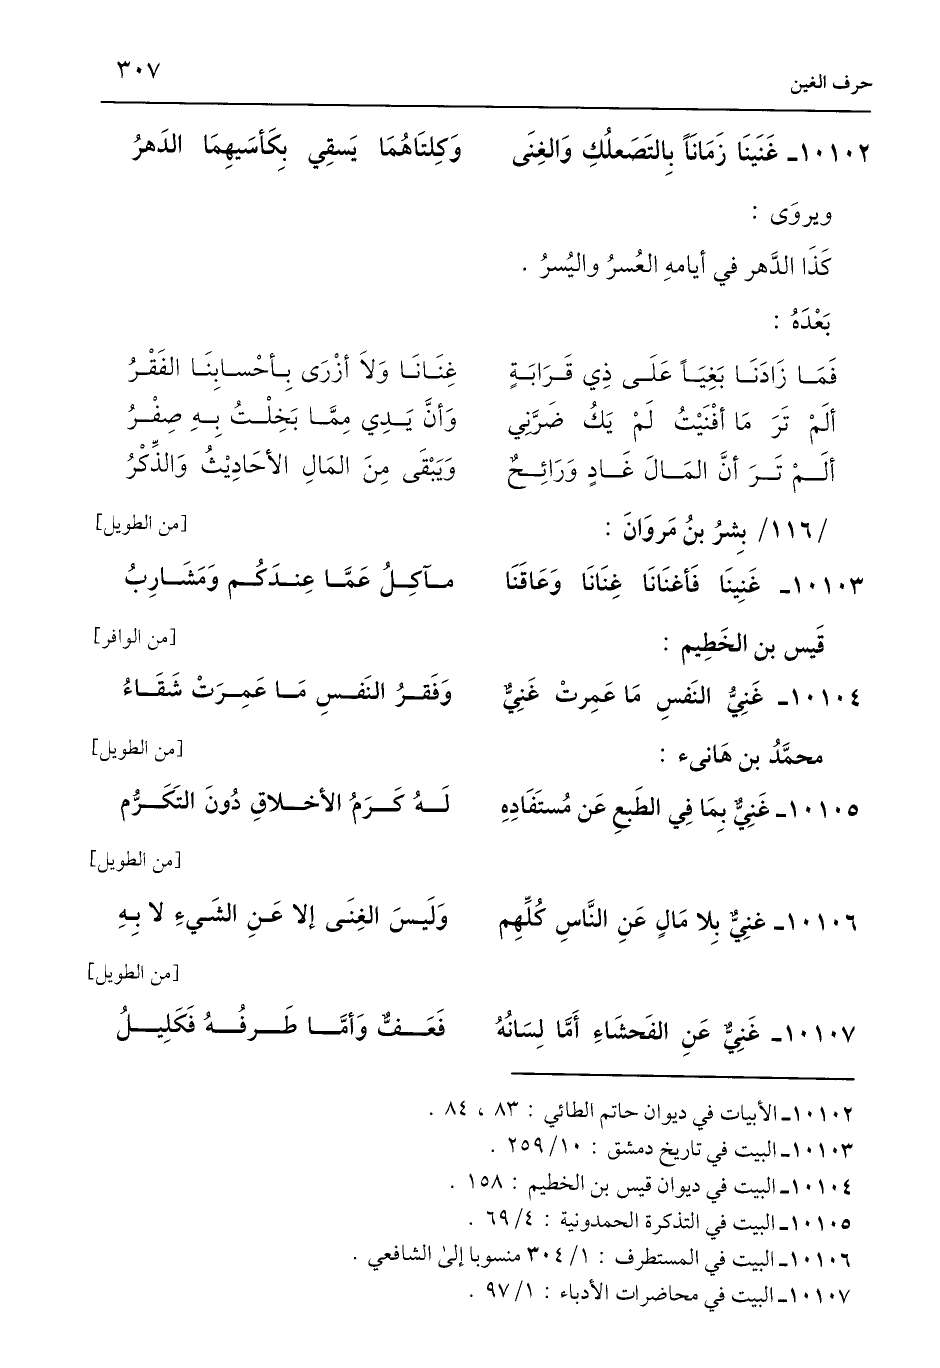 حرف الغين ٣٠٧
١٠١٠٢ـ غَنَينَا زَمَانَاً بِالتَصَعلُكِ وَالغِنَى وَكِلتَاهُمَا يَسقِي بِكَأسَيهِمَا الدَهرُ
ويروَى :
كَذَا الدَّهر في أيامهِ العُسرُ واليُسرُ .
بَعْدَهُ :
فَمَا زَادَنَا بَغيَاً عَلَى ذِي قَرَابَةٍ غِنَانَا وَلاَ أزْرَى بِأحْسابِنَا الفَقْرُ
ألَمْ تَرَ مَا أفْنَيْتُ لَمْ يَكُ ضَرَّنِي وَأنَّ يَدِي مِمَّا بَخِلْتُ بِهِ صِفْرُ
ألَمْ تَرَ أنَّ المَالَ غَادٍ وَرَائِحٌ وَيَبْقَى مِنَ المَالِ الأحَادِيْثُ وَالذِّكْرُ
/١١٦/ بِشرُ بنُ مَروَانَ : [من الطويل]
١٠١٠٣ـ غَنِينَا فَأغنَانَا غِنَانَا وَعَاقَنَا مآكِلُ عَمَّا عِندَكُم وَمَشَارِبُ
قَيس بن الخَطِيم : [من الوافر]
١٠١٠٤ـ غَنِيُّ النَفسِ مَا عَمِرتْ غَنِيٌّ وَفَقرُ النَفسِ مَا عَمِرَتْ شَقَاءُ
محمَّدُ بن هَانىء : [من الطويل]
١٠١٠٥ـ غَنِيٌّ بِمَا فِي الطَبعِ عَن مُستَفَادِهِ لَهُ كَرَمُ الأخلاقِ دُونَ التَكَرُّمِ
[من الطويل]
١٠١٠٦ـ غنِيٌّ بِلا مَالٍ عَنِ النَّاسِ كُلِّهِم وَلَيسَ الغِنَى إلا عَنِ الشَيءِ لا بِهِ
[من الطويل]
١٠١٠٧ـ غَنِيٌّ عَنِ الفَحشَاءِ أَمَّا لِسَانُهُ فَعَفٌّ وَأمَّا طَرفُهُ فَكَلِيلُ
١٠١٠٢ـ الأبيات في ديوان حاتم الطائي : ٨٣ ، ٨٤ .
١٠١٠٣ـ البيت في تاريخ دمشق : ٢٥٩/١٠ .
١٠١٠٤ـ البيت في ديوان قيس بن الخطيم : ١٥٨ .
١٠١٠٥ـ البيت في التذكرة الحمدونية : ٦٩/٤ .
١٠١٠٦ـ البيت في المستطرف : ٣٠٤/١ منسوبا إلىٰ الشافعي .
١٠١٠٧ـ البيت في محاضرات الأدباء : ٩٧/١ .